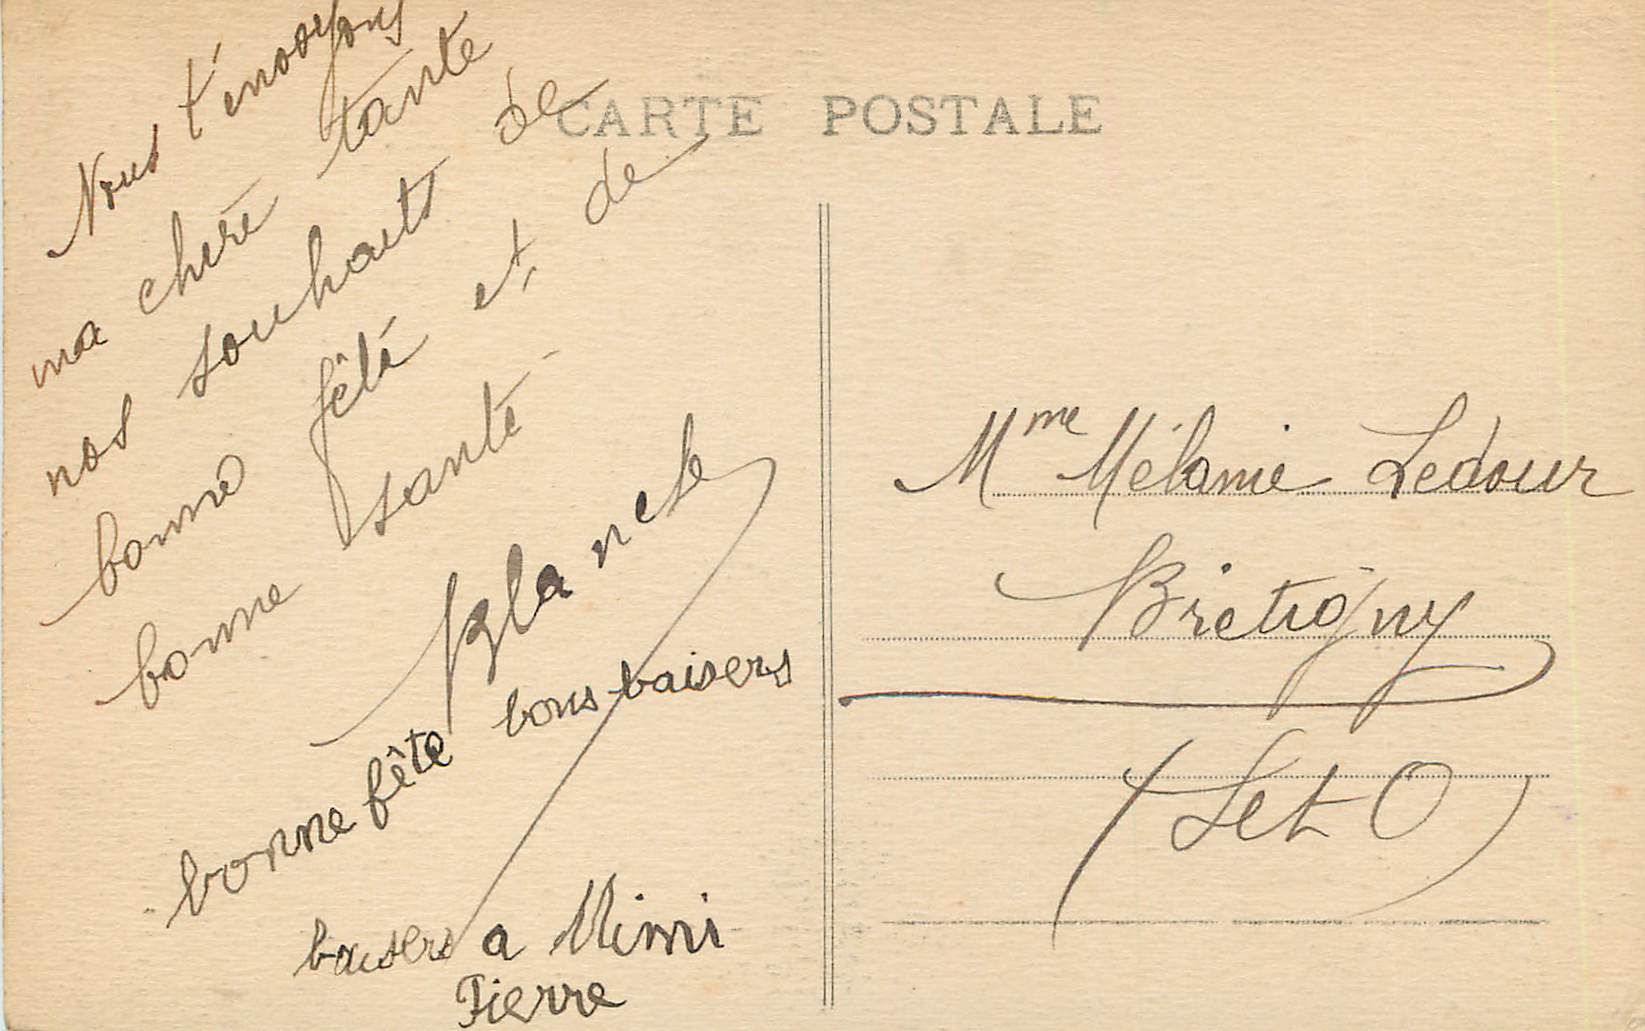 CARTE POSTALE
Nous t'envoyons
ma chère tante
nos souhaits de
bonne fête et de
bonne santé
Blanche
bonne fête bons baisers
baisers a Mimi
Pierre
Mme Mélanie Ledour
Bretigny
(S et O)